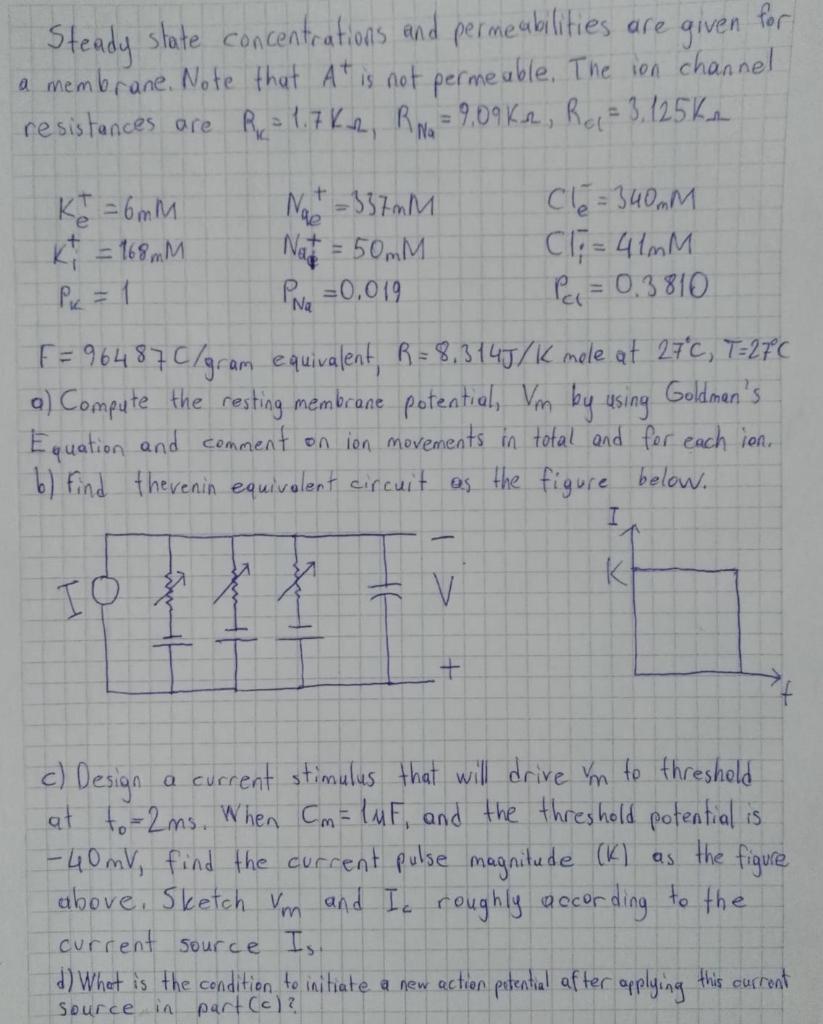 Steady state concentrations and permeabilities are given for
a membrane. Note that A⁺ is not permeable. The ion channel
resistances are R_K = 1.7KΩ, R_Na = 9.09KΩ, R_Cl = 3.125KΩ
K_e⁺ = 6mM Na_e⁺ = 337mM Cl_e⁻ = 340mM
K_i⁺ = 168mM Na_i⁺ = 50mM Cl_i⁻ = 41mM
P_K = 1 P_Na = 0.019 P_Cl = 0.3810
F = 96487C/gram equivalent, R = 8.314J/K mole at 27°C, T=27°C
a) Compute the resting membrane potential, Vm by using Goldman's
Equation and comment on ion movements in total and for each ion.
b) Find thevenin equivalent circuit as the figure below.
I
K
I V
− +
t
c) Design a current stimulus that will drive Vm to threshold
at t₀=2ms. When Cm = 1uF, and the threshold potential is
-40mV, find the current pulse magnitude (K) as the figure
above. Sketch Vm and Ic roughly according to the
current source Is.
d) What is the condition to initiate a new action potential after applying this current
source in part (c)?